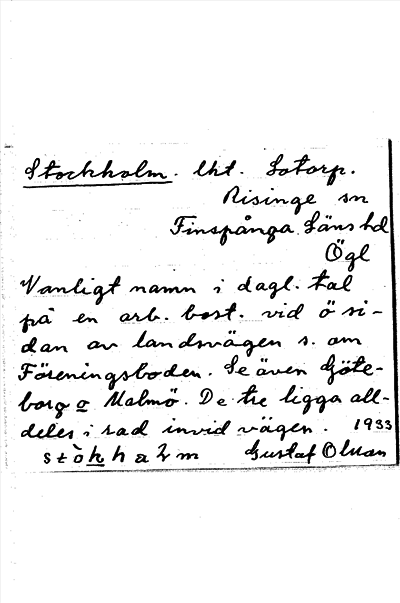 Stockholm. lht. Sotorp.
Risinge sn
Finspånga Läns hd
Ögl
Vanligt namn i dagl. tal
på en arb. bost. vid ö si-
dan av landsvägen s. om
Föreningsboden. Se även Göte-
borg o Malmö. De tre ligga all-
deles i rad invid vägen. 1933
Gustaf Olsson